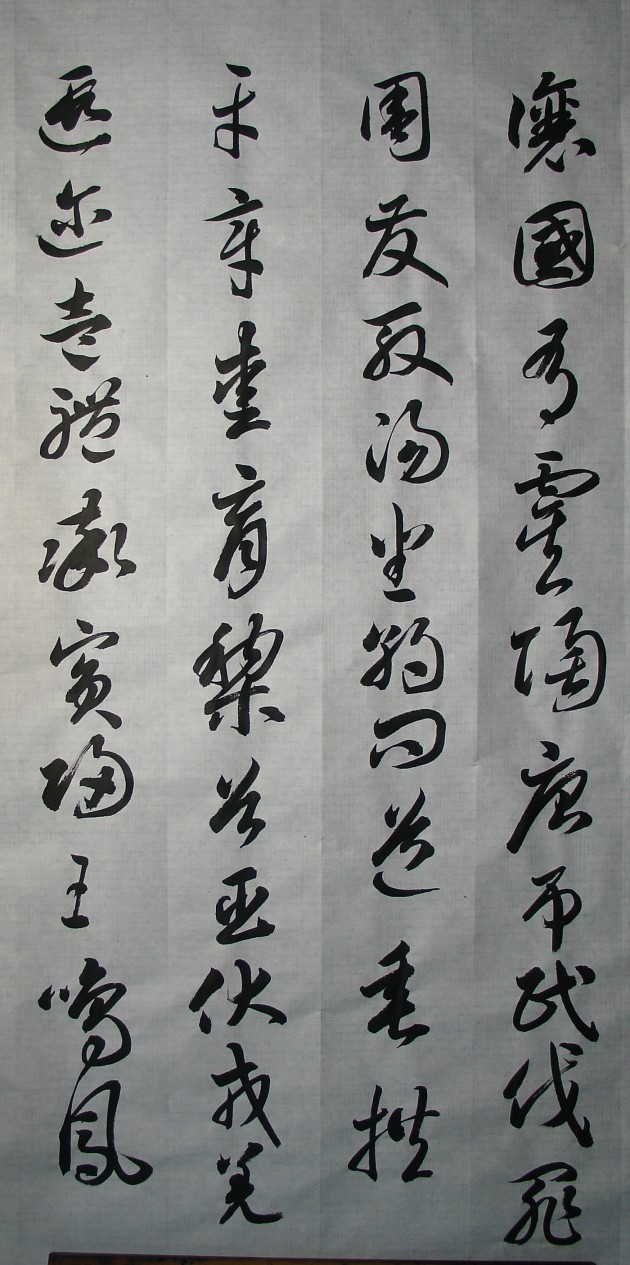 讓國有虞陶唐弔民伐罪
周發殷湯坐朝問道垂拱
平章愛育黎首臣伏戎羌
遐邇壹體率賓歸王鳴鳳